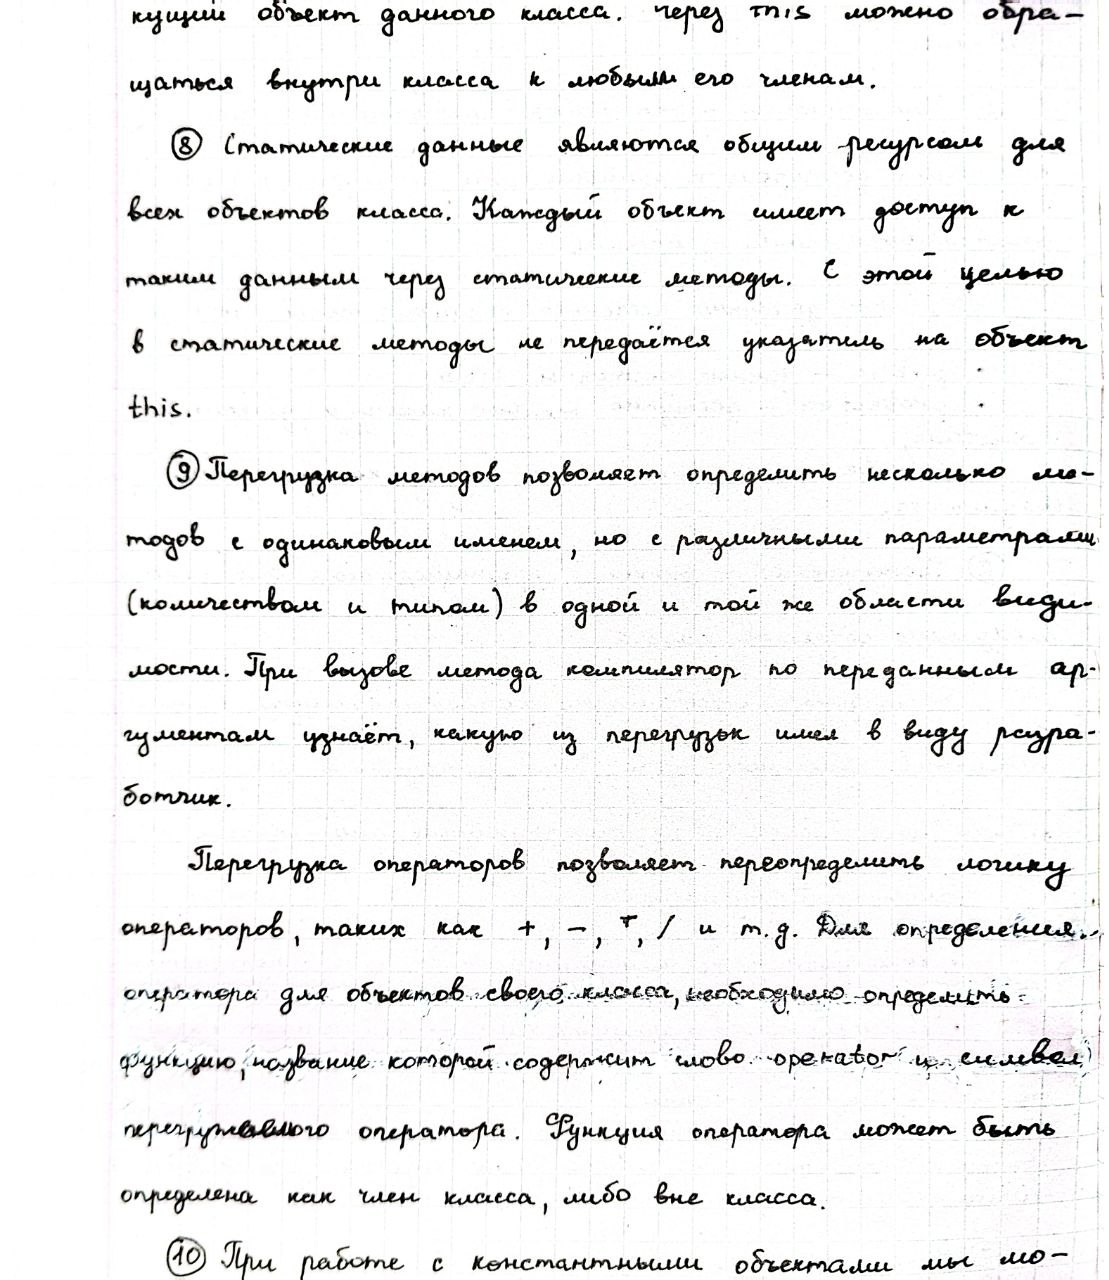 кущий объект данного класса. Через this можно обра-
щаться внутри класса к любым его членам.
⑧ Статические данные являются общим ресурсом для
всех объектов класса. Каждый объект имеет доступ к
таким данным через статические методы. С этой целью
в статические методы не передаётся указатель на объект
this.
⑨ Перегрузка методов позволяет определить несколько ме-
тодов с одинаковым именем, но с различными параметрами
(количеством и типом) в одной и той же области види-
мости. При вызове метода компилятор по переданным ар-
гументам узнаёт, какую из перегрузок имел в виду разра-
ботчик.
Перегрузка операторов позволяет переопределить логику
операторов, таких как +, -, *, / и т.д. Для определения
оператора для объектов своего класса, необходимо определить
функцию, название которой содержит слово operator и символ
перегружаемого оператора. Функция оператора может быть
определена как член класса, либо вне класса.
⑩ При работе с константными объектами мы мо-